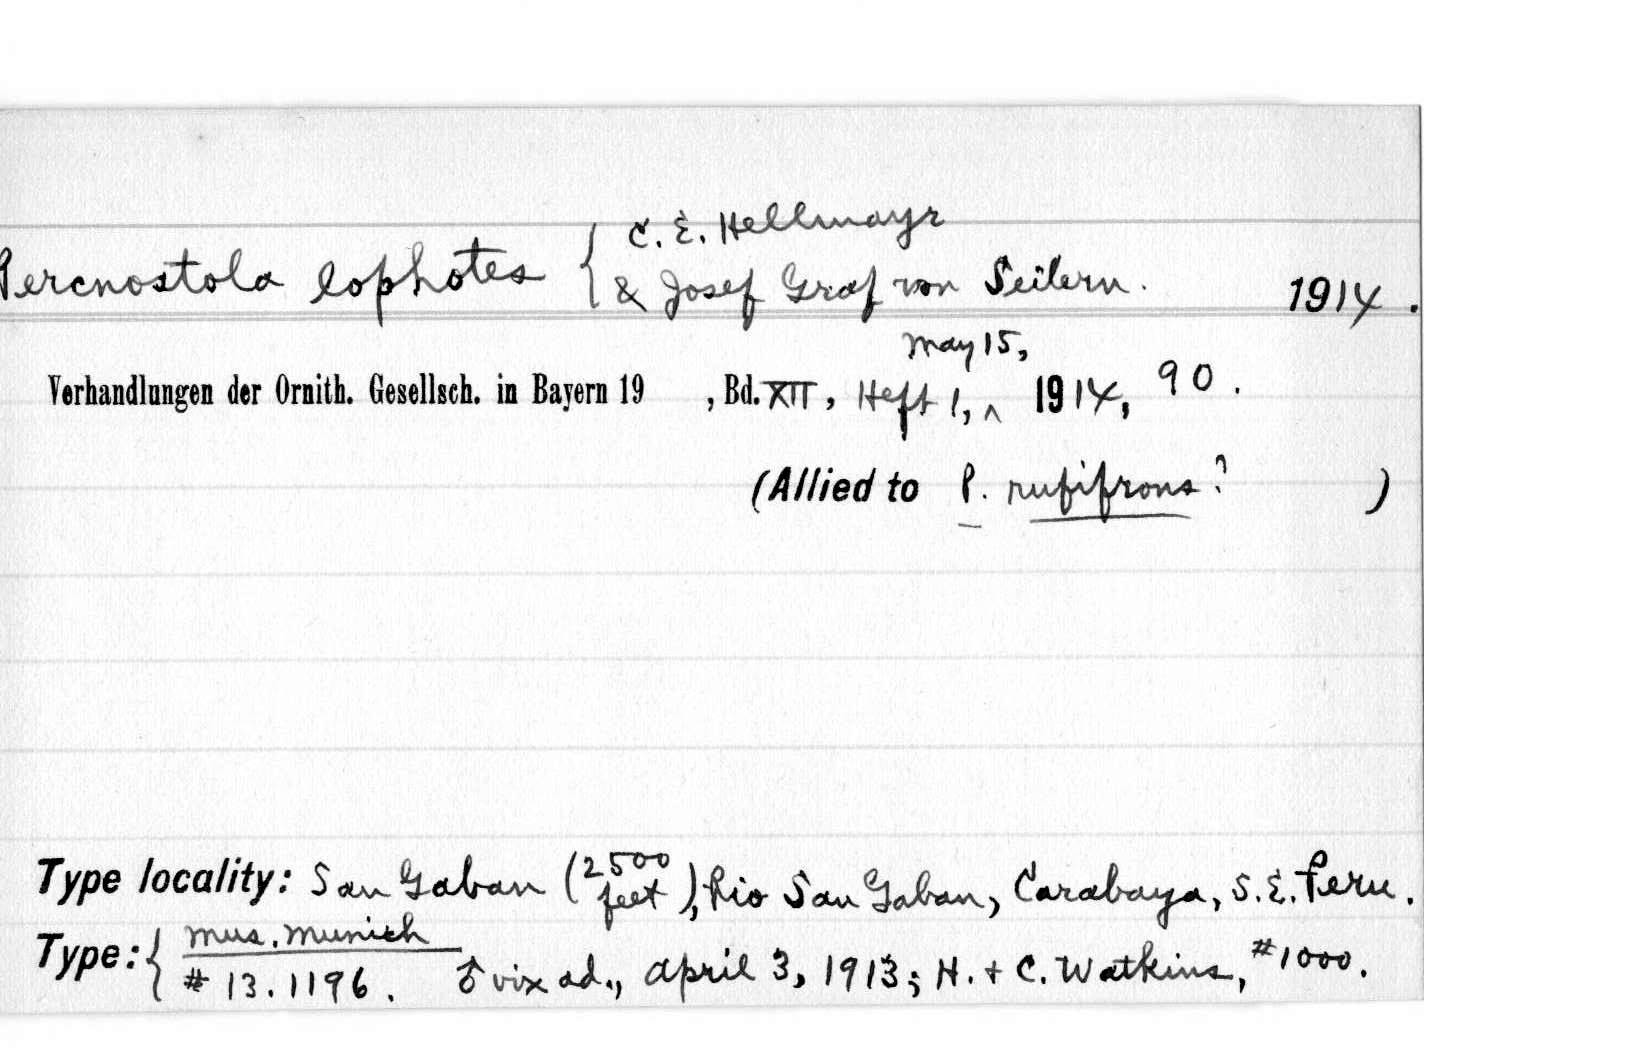 Percnostola lophotes { C. E. Hellmayr
& Josef Graf von Seilern. 1914.
May 15,
Verhandlungen der Ornith. Gesellsch. in Bayern 19 , Bd. XII, Heft 1, ^ 1914, 90.
(Allied to P. rufifrons? )
Type locality: San Gaban (2500 feet), Rio San Gaban, Carabaya, S.E. Peru.
Type: { Mus. Munich
# 13.1196. ♂ vix ad., April 3, 1913; H. + C. Watkins, #1000.